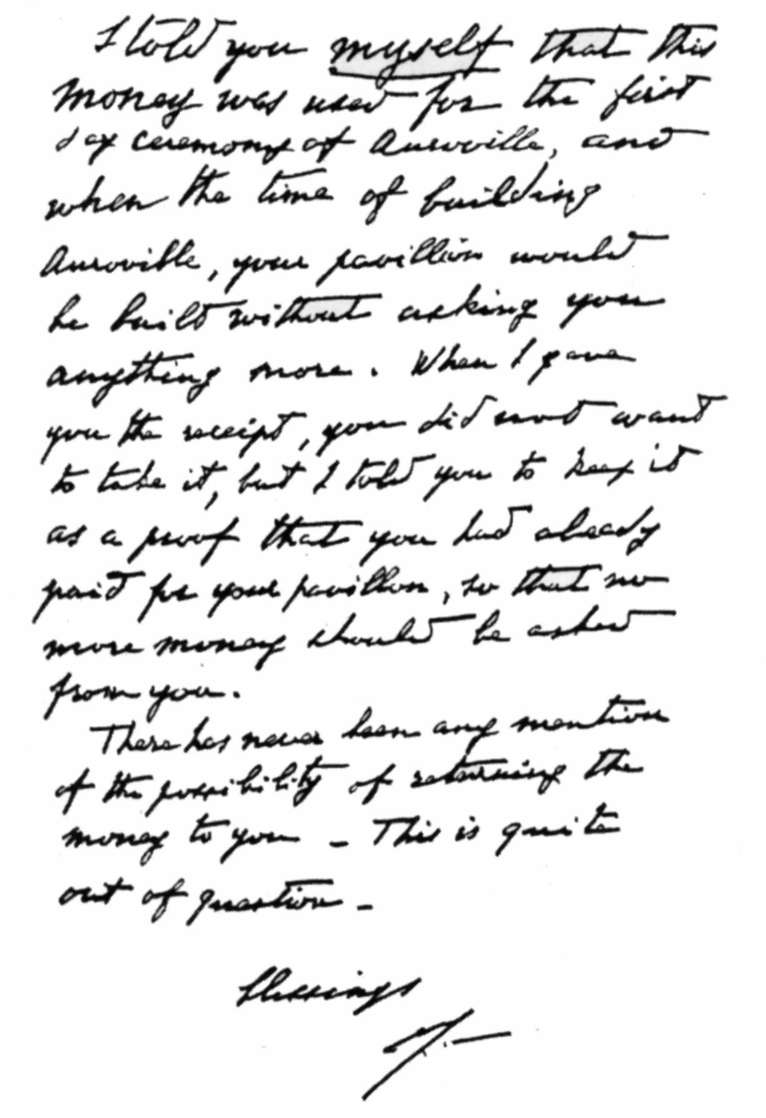 I told you myself that this
money was used for the first
day ceremony of Auroville, and
when the time of building
Auroville, your pavillion would
be build without asking you
anything more. When I gave
you the receipt, you did not want
to take it, but I told you to keep it
as a proof that you had already
paid for your pavillon, so that no
more money should be asked
from you.
There has never been any mention
of the possibility of returning the
money to you – This is quite
out of question –
blessings